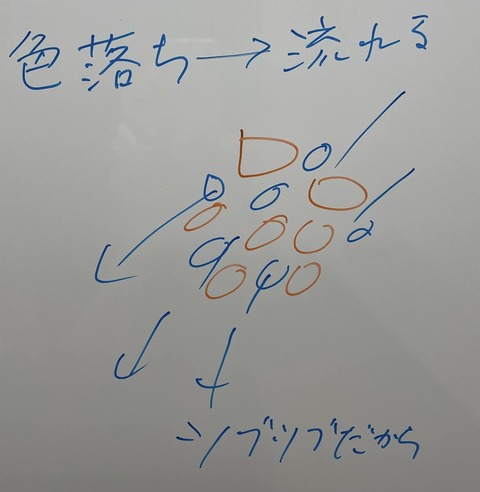 色落ち→流れる
ツブツブだから